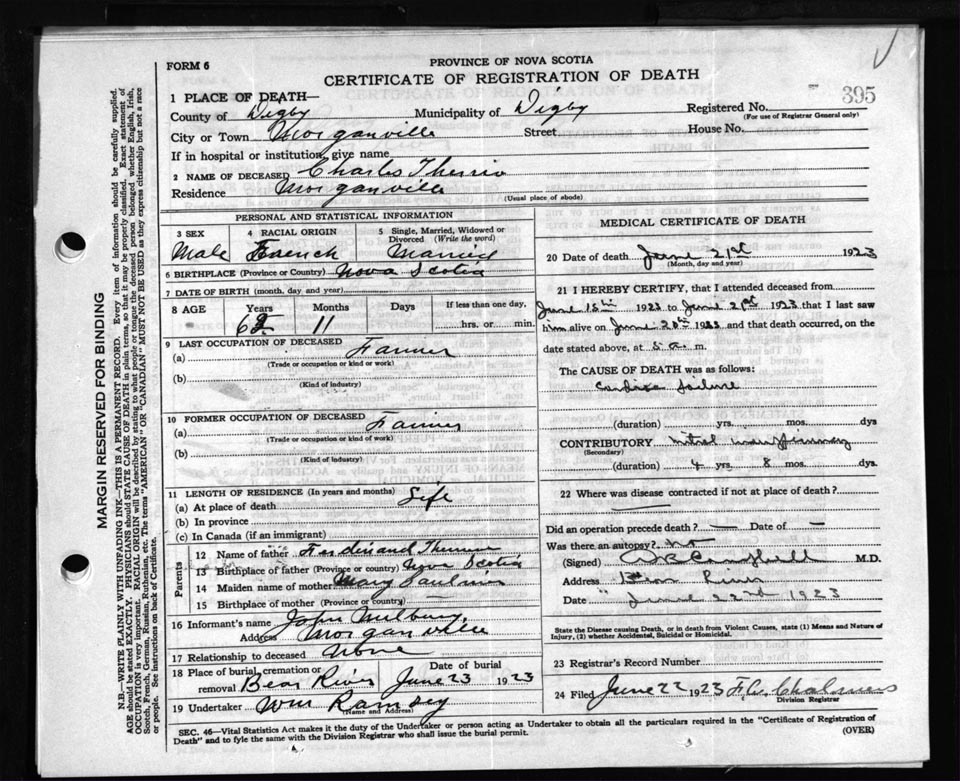 FORM 6
PROVINCE OF NOVA SCOTIA
CERTIFICATE OF REGISTRATION OF DEATH
395
1 PLACE OF DEATH—
County of Digby Municipality of Digby Registered No.
(For use of Registrar General only)
City or Town Morganville Street House No.
If in hospital or institution, give name
2 NAME OF DECEASED Charles Therrio
Residence Morganville
(Usual place of abode)
PERSONAL AND STATISTICAL INFORMATION
3 SEX 4 RACIAL ORIGIN 5 Single, Married, Widowed or Divorced (Write the word)
Male French Married
6 BIRTHPLACE (Province or Country) Nova Scotia
7 DATE OF BIRTH (month, day, and year)
8 AGE Years Months Days If less than one day,
11 hrs. or min.
9 LAST OCCUPATION OF DECEASED
(a) Farmer
(Trade or occupation or kind or work)
(b)
(Kind of industry)
10 FORMER OCCUPATION OF DECEASED
(a) Farmer
(Trade or occupation or kind of work)
(b)
(Kind of industry)
11 LENGTH OF RESIDENCE (In years and months)
(a) At place of death Life
(b) In province
(c) In Canada (if an immigrant)
Parents
12 Name of father Ferdinand
13 Birthplace of father (Province or country) Nova Scotia
14 Maiden name of mother Mary
15 Birthplace of mother (Province or country)
16 Informant's name John Milbury
Address Morganville
17 Relationship to deceased None
18 Place of burial, cremation or removal Bear River Date of burial June 23 1923
19 Undertaker Wm Ramsey
(Name and Address)
MEDICAL CERTIFICATE OF DEATH
20 Date of death June 21st 1923
(Month, day and year)
21 I HEREBY CERTIFY, that I attended deceased from
June 15th 1923 to June 21st 1923 that I last saw
him alive on June 20th 1923 and that death occurred, on the
date stated above, at 5 a. m.
The CAUSE OF DEATH was as follows:
Cardiac failure
(duration) yrs. mos. dys
CONTRIBUTORY Mitral insufficiency
(Secondary)
(duration) 4 yrs. 8 mos. dys.
22 Where was disease contracted if not at place of death?
Did an operation precede death? — Date of —
Was there an autopsy? no
(Signed) Campbell M.D.
Address Bear River
Date " June 22nd 1923
State the Disease causing Death, or in death from Violent Causes, state (1) Means and Nature of
Injury, (2) whether Accidental, Suicidal or Homicidal.
23 Registrar's Record Number
24 Filed June 22 1923
Division Registrar
SEC. 46—Vital Statistics Act makes it the duty of the Undertaker or person acting as Undertaker to obtain all the particulars required in the "Certificate of Registration of
Death" and to fyle the same with the Division Registrar who shall issue the burial permit. (OVER)
MARGIN RESERVED FOR BINDING
N.B.—WRITE PLAINLY WITH UNFADING INK—THIS IS A PERMANENT RECORD. Every item of information should be carefully supplied.
AGE should be stated EXACTLY. PHYSICIANS should STATE CAUSE OF DEATH in plain terms, so that it may be properly classified. Exact statement of
OCCUPATION is very important. RACIAL ORIGIN will be described by stating to what people or tongue the deceased person belonged whether English, Irish,
Scotch, French, German, Russian, Ruthenian, etc. The terms "AMERICAN" OR "CANADIAN" MUST NOT BE USED as they express citizenship but not a race
or people. See instructions on back of Certificate.